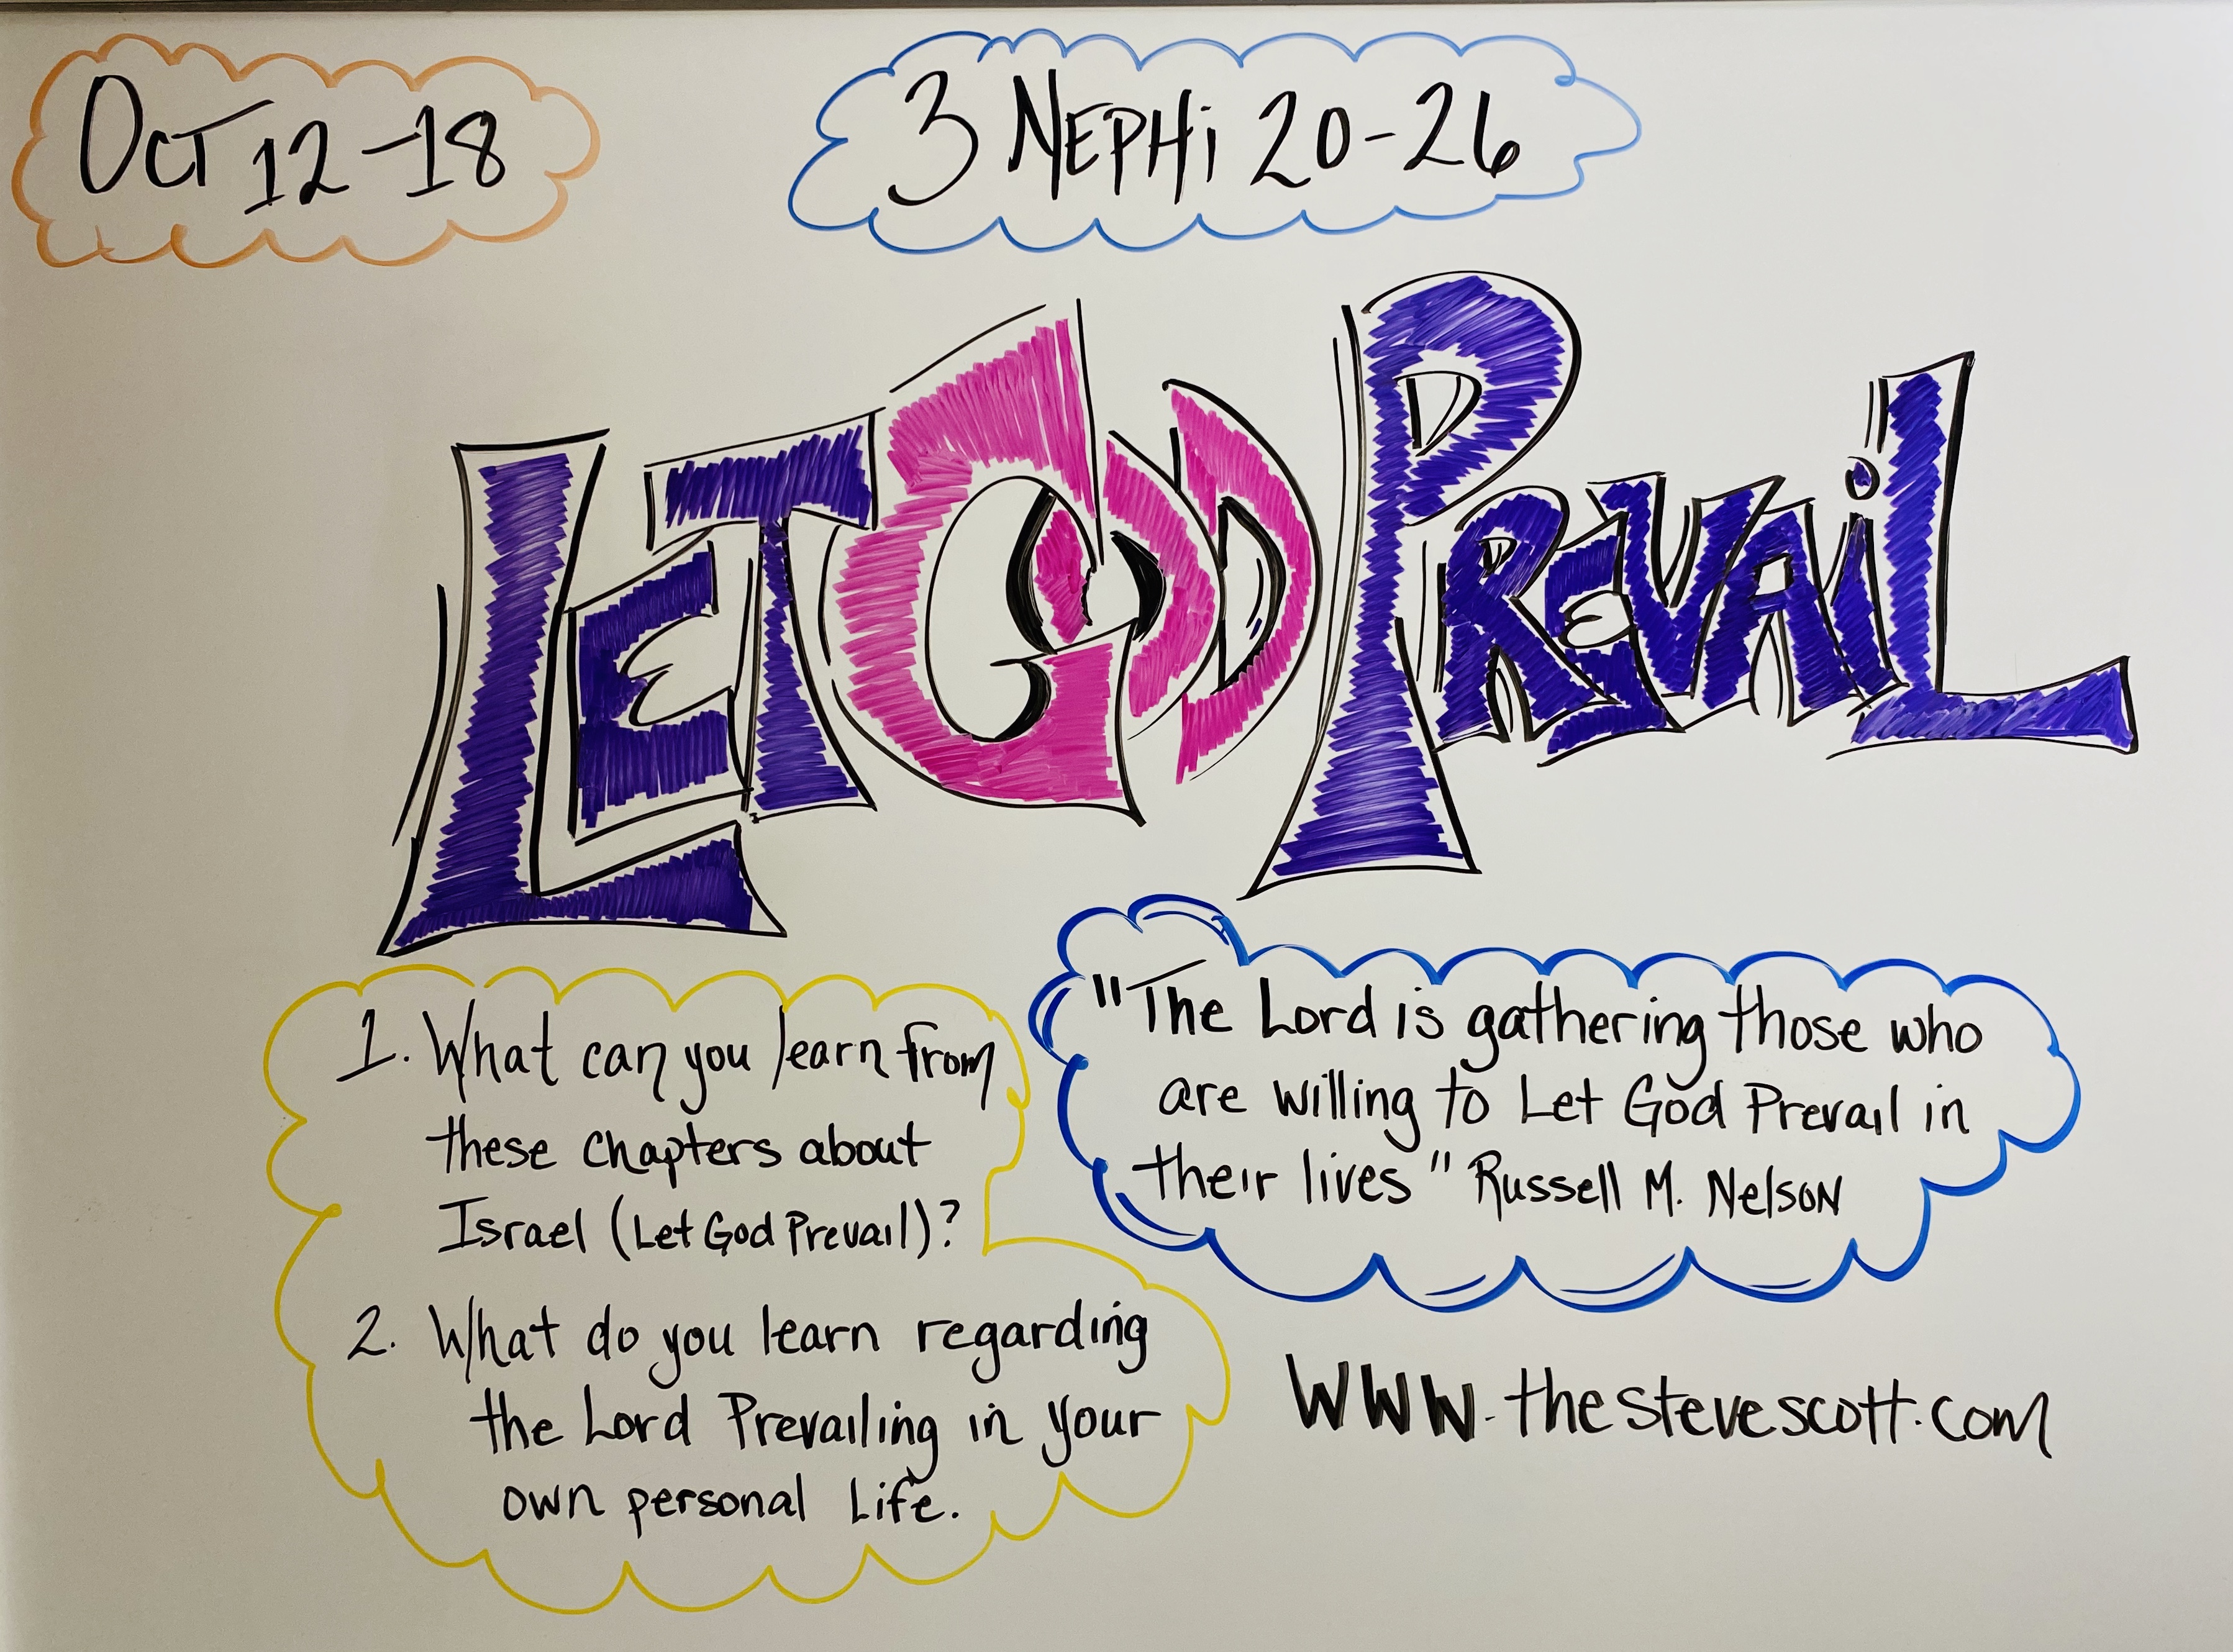 Oct 12-18
3 Nephi 20-26
Let God Prevail
1. What can you learn from
these chapters about
Israel (Let God Prevail)?
2. What do you learn regarding
the Lord Prevailing in your
own personal Life.
"The Lord is gathering those who
are willing to Let God Prevail in
their lives" Russell M. Nelson
www.thestevescott.com